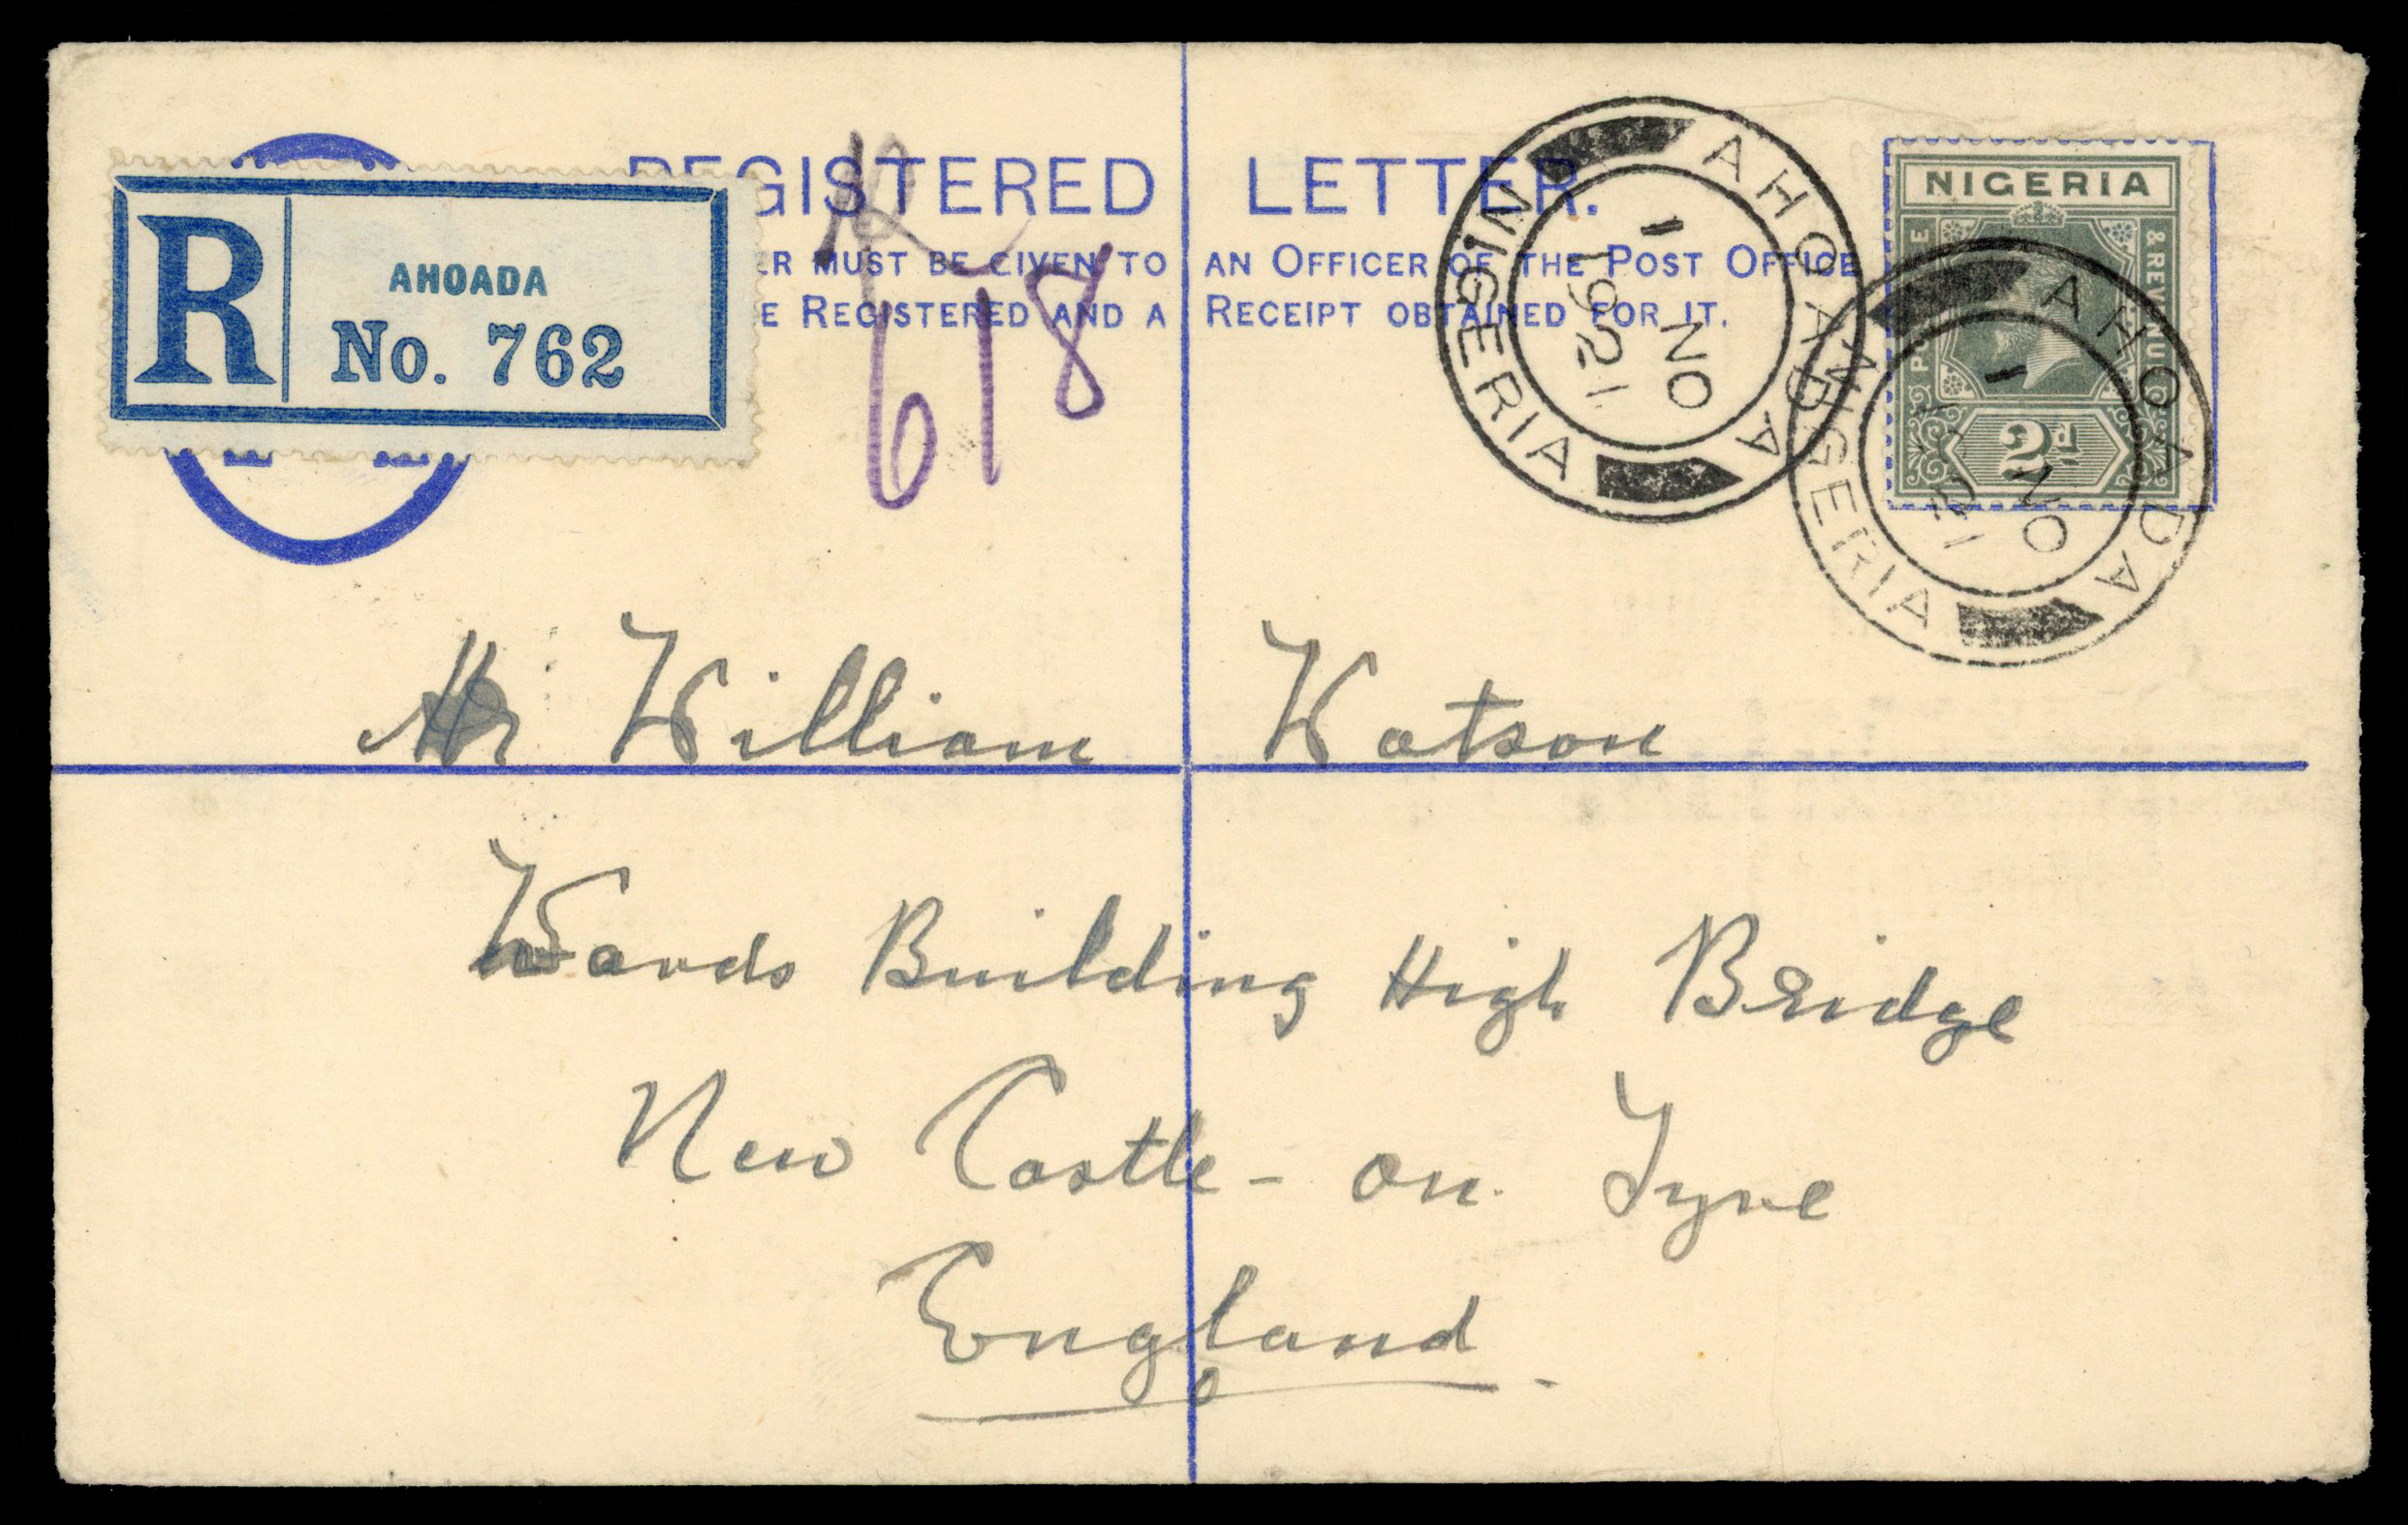 REGISTERED LETTER.
ER MUST BE GIVEN TO AN OFFICER OF THE POST OFFICE
E REGISTERED AND A RECEIPT OBTAINED FOR IT.
R
AHOADA
No. 762
618
AHOADA
1
NO
1921
NIGERIA
NIGERIA
& REVENUE
2d
AHOADA
1
NO
1921
NIGERIA
Mr William Watson
Wards Building High Bridge
New Castle - on Tyne
England